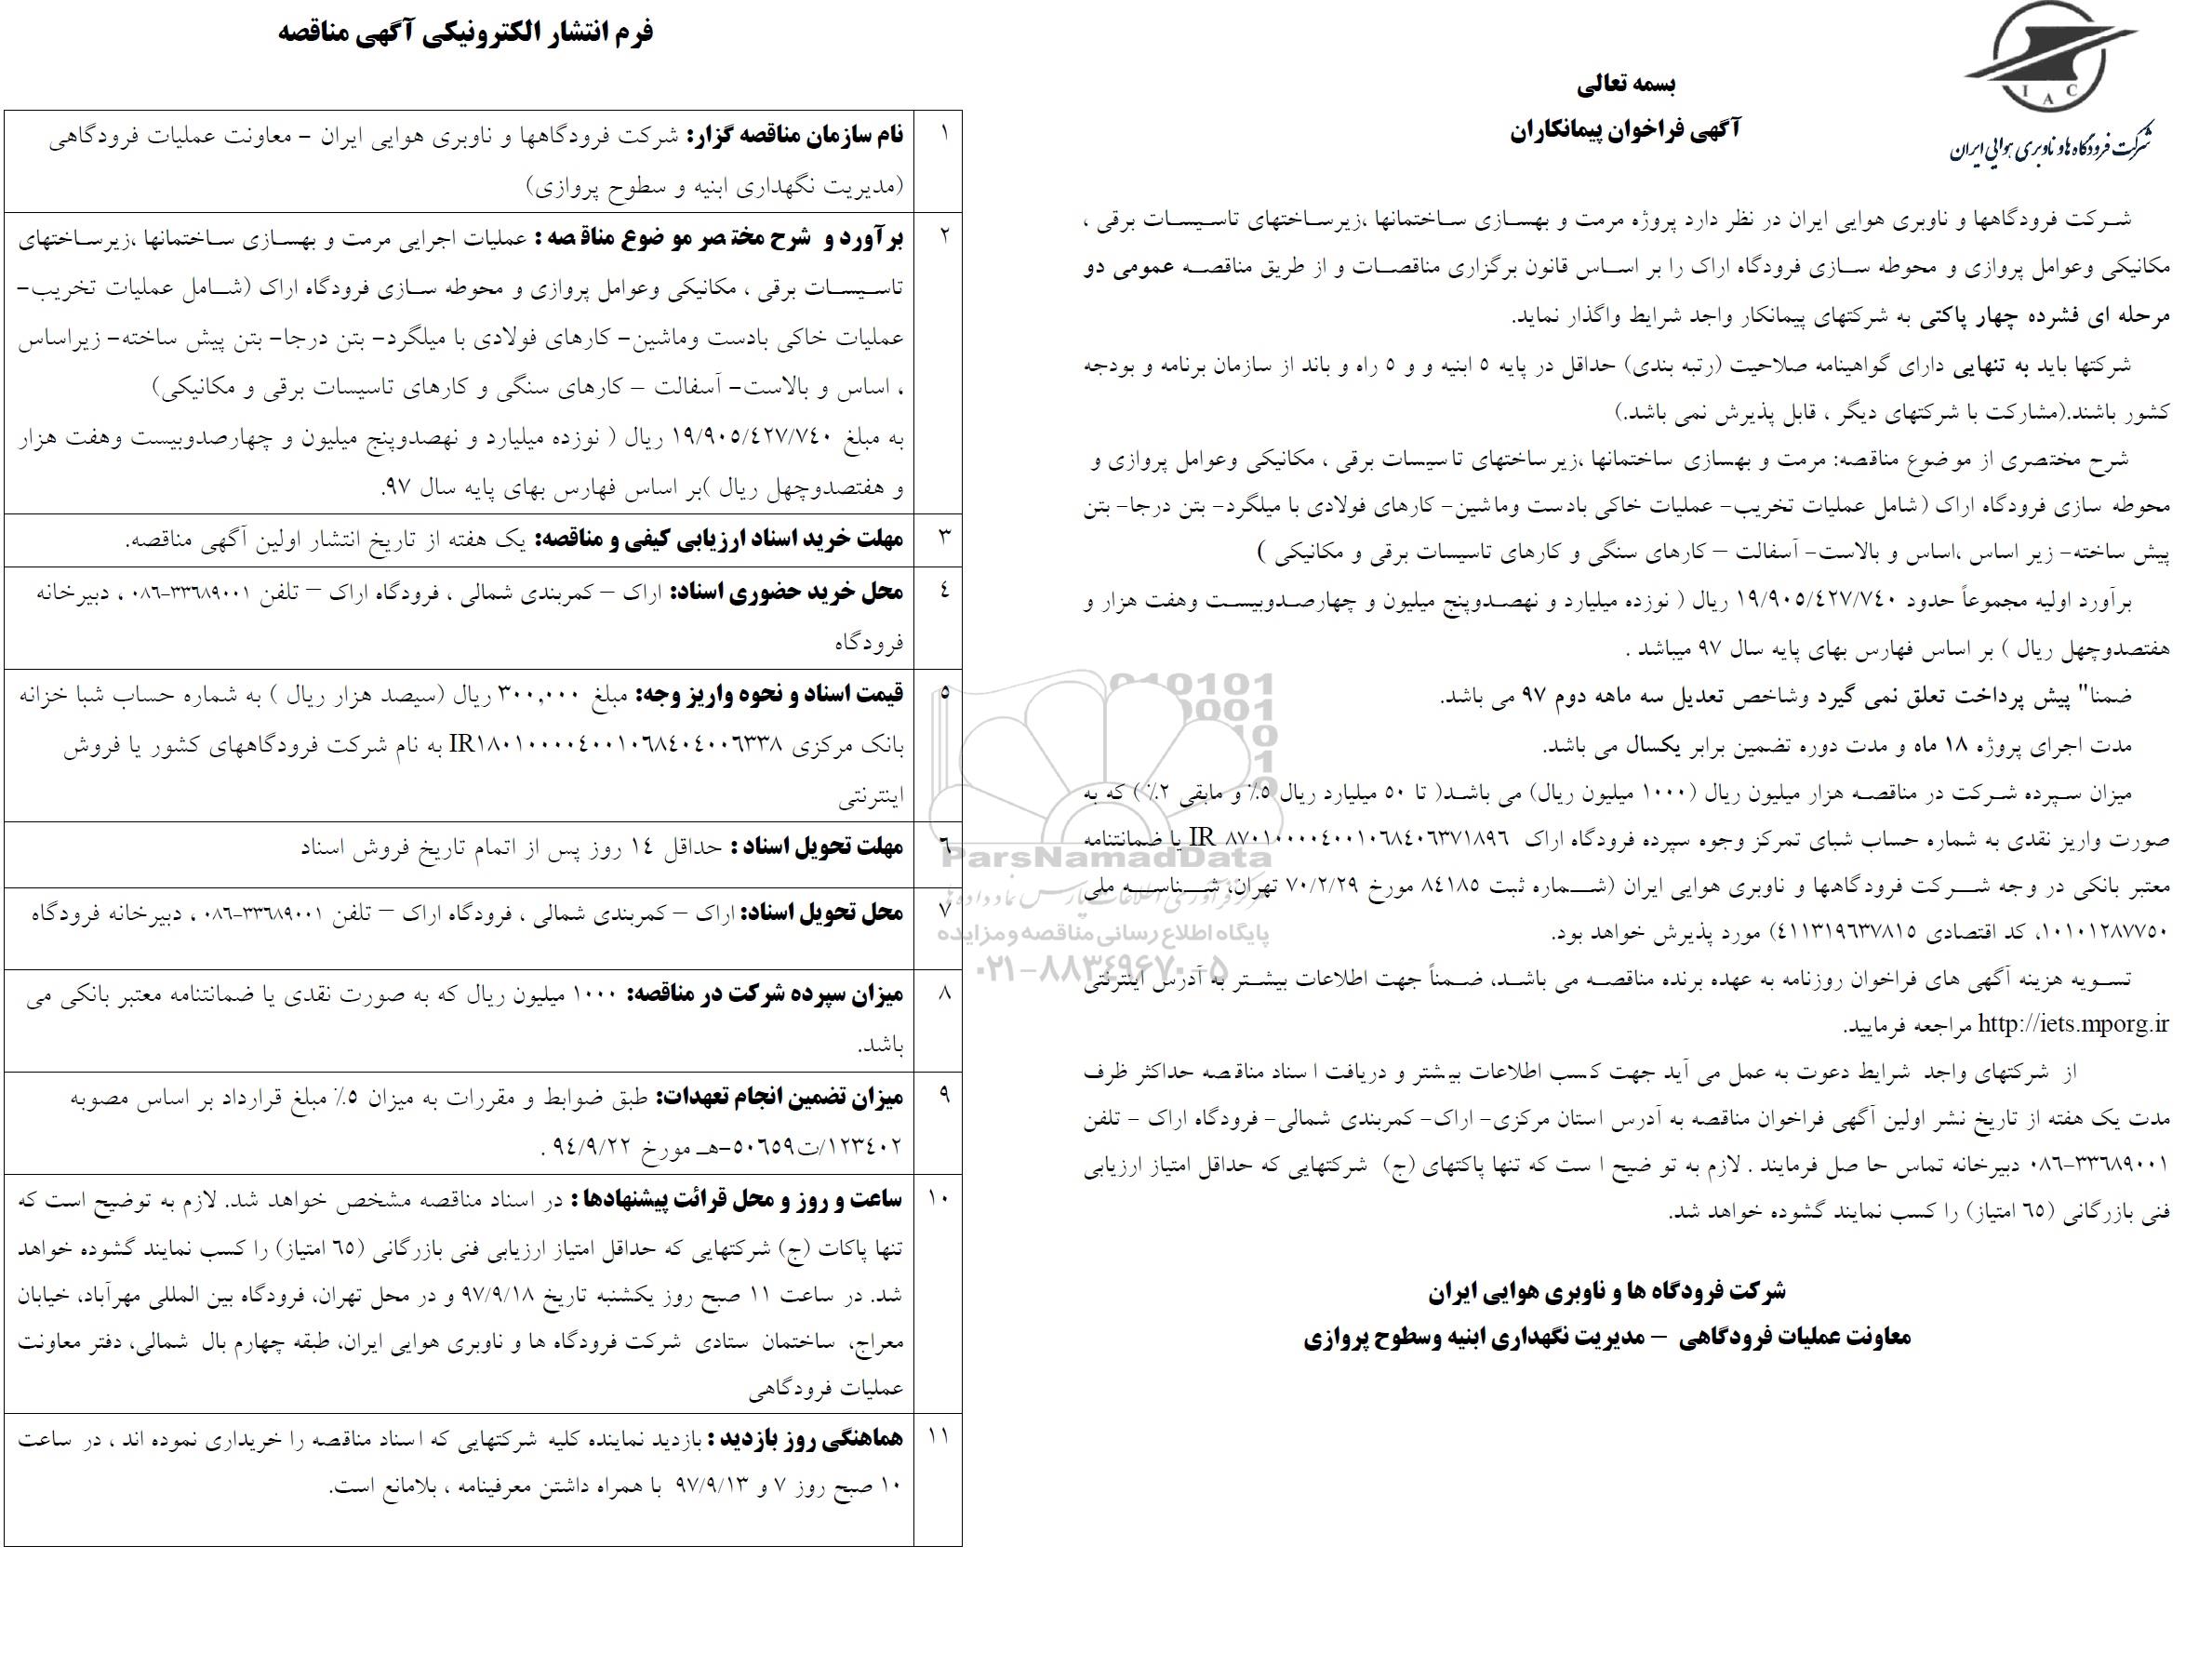 I A C
شرکت فرودگاه ها و ناوبری هوایی ایران
بسمه تعالی
آگهی فراخوان پیمانکاران
شرکت فرودگاهها و ناوبری هوایی ایران در نظر دارد پروژه مرمت و بهسازی ساختمانها ،زیرساختهای تاسیسات برقی ،
مکانیکی وعوامل پروازی و محوطه سازی فرودگاه اراک را بر اساس قانون برگزاری مناقصات و از طریق مناقصه عمومی دو
مرحله ای فشرده چهار پاکتی به شرکتهای پیمانکار واجد شرایط واگذار نماید.
شرکتها باید به تنهایی دارای گواهینامه صلاحیت (رتبه بندی) حداقل در پایه ٥ ابنیه و و ٥ راه و باند از سازمان برنامه و بودجه
کشور باشند.(مشارکت با شرکتهای دیگر ، قابل پذیرش نمی باشد.)
شرح مختصری از موضوع مناقصه: مرمت و بهسازی ساختمانها ،زیرساختهای تاسیسات برقی ، مکانیکی وعوامل پروازی و
محوطه سازی فرودگاه اراک (شامل عملیات تخریب- عملیات خاکی بادست وماشین- کارهای فولادی با میلگرد- بتن درجا- بتن
پیش ساخته- زیر اساس ،اساس و بالاست- آسفالت – کارهای سنگی و کارهای تاسیسات برقی و مکانیکی )
برآورد اولیه مجموعاً حدود ١٩/٩٠٥/٤٢٧/٧٤٠ ریال ( نوزده میلیارد و نهصدوپنج میلیون و چهارصدوبیست وهفت هزار و
هفتصدوچهل ریال ) بر اساس فهارس بهای پایه سال ٩٧ میباشد .
ضمنا" پیش پرداخت تعلق نمی گیرد وشاخص تعدیل سه ماهه دوم ٩٧ می باشد.
مدت اجرای پروژه ١٨ ماه و مدت دوره تضمین برابر یکسال می باشد.
میزان سپرده شرکت در مناقصه هزار میلیون ریال (١٠٠٠ میلیون ریال) می باشد( تا ٥٠ میلیارد ریال ٥٪ و مابقی ٢٪ ) که به
صورت واریز نقدی به شماره حساب شبای تمرکز وجوه سپرده فرودگاه اراک IR ٨٧٠١٠٠٠٠٤٠٠١٠٦٨٤٠٦٣٧١٨٩٦ یا ضمانتنامه
معتبر بانکی در وجه شرکت فرودگاهها و ناوبری هوایی ایران (شماره ثبت ٨٤١٨٥ مورخ ٧٠/٢/٢٩ تهران، شناسه ملی
١٠١٠١٢٨٧٧٥٠، کد اقتصادی ٤١١٣١٩٦٣٧٨١٥) مورد پذیرش خواهد بود.
تسویه هزینه آگهی های فراخوان روزنامه به عهده برنده مناقصه می باشد، ضمناً جهت اطلاعات بیشتر به آدرس اینترنتی
http://iets.mporg.ir مراجعه فرمایید.
از شرکتهای واجد شرایط دعوت به عمل می آید جهت کسب اطلاعات بیشتر و دریافت اسناد مناقصه حداکثر ظرف
مدت یک هفته از تاریخ نشر اولین آگهی فراخوان مناقصه به آدرس استان مرکزی- اراک- کمربندی شمالی- فرودگاه اراک - تلفن
٠٨٦-٣٣٦٨٩٠٠١ دبیرخانه تماس حاصل فرمایند . لازم به توضیح است که تنها پاکتهای (ج) شرکتهایی که حداقل امتیاز ارزیابی
فنی بازرگانی (٦٥ امتیاز) را کسب نمایند گشوده خواهد شد.
شرکت فرودگاه ها و ناوبری هوایی ایران
معاونت عملیات فرودگاهی – مدیریت نگهداری ابنیه وسطوح پروازی
فرم انتشار الکترونیکی آگهی مناقصه
١ نام سازمان مناقصه گزار: شرکت فرودگاهها و ناوبری هوایی ایران - معاونت عملیات فرودگاهی
(مدیریت نگهداری ابنیه و سطوح پروازی)
٢ برآورد و شرح مختصر موضوع مناقصه : عملیات اجرایی مرمت و بهسازی ساختمانها ،زیرساختهای
تاسیسات برقی ، مکانیکی وعوامل پروازی و محوطه سازی فرودگاه اراک (شامل عملیات تخریب-
عملیات خاکی بادست وماشین- کارهای فولادی با میلگرد- بتن درجا- بتن پیش ساخته- زیراساس
، اساس و بالاست- آسفالت – کارهای سنگی و کارهای تاسیسات برقی و مکانیکی)
به مبلغ ١٩/٩٠٥/٤٢٧/٧٤٠ ریال ( نوزده میلیارد و نهصدوپنج میلیون و چهارصدوبیست وهفت هزار
و هفتصدوچهل ریال )بر اساس فهارس بهای پایه سال ٩٧.
٣ مهلت خرید اسناد ارزیابی کیفی و مناقصه: یک هفته از تاریخ انتشار اولین آگهی مناقصه.
٤ محل خرید حضوری اسناد: اراک – کمربندی شمالی ، فرودگاه اراک – تلفن ٠٨٦-٣٣٦٨٩٠٠١ ، دبیرخانه
فرودگاه
٥ قیمت اسناد و نحوه واریز وجه: مبلغ ٣٠٠,٠٠٠ ریال (سیصد هزار ریال ) به شماره حساب شبا خزانه
بانک مرکزی IR١٨٠١٠٠٠٠٤٠٠١٠٦٨٤٠٤٠٠٦٣٣٨ به نام شرکت فرودگاههای کشور یا فروش
اینترنتی
٦ مهلت تحویل اسناد : حداقل ١٤ روز پس از اتمام تاریخ فروش اسناد
٧ محل تحویل اسناد: اراک – کمربندی شمالی ، فرودگاه اراک – تلفن ٠٨٦-٣٣٦٨٩٠٠١ ، دبیرخانه فرودگاه
٨ میزان سپرده شرکت در مناقصه: ١٠٠٠ میلیون ریال که به صورت نقدی یا ضمانتنامه معتبر بانکی می
باشد.
٩ میزان تضمین انجام تعهدات: طبق ضوابط و مقررات به میزان ٥٪ مبلغ قرارداد بر اساس مصوبه
١٢٣٤٠٢/ت٥٠٦٥٩-هـ مورخ ٩٤/٩/٢٢ .
١٠ ساعت و روز و محل قرائت پیشنهادها : در اسناد مناقصه مشخص خواهد شد. لازم به توضیح است که
تنها پاکات (ج) شرکتهایی که حداقل امتیاز ارزیابی فنی بازرگانی (٦٥ امتیاز) را کسب نمایند گشوده خواهد
شد. در ساعت ١١ صبح روز یکشنبه تاریخ ٩٧/٩/١٨ و در محل تهران، فرودگاه بین المللی مهرآباد، خیابان
معراج، ساختمان ستادی شرکت فرودگاه ها و ناوبری هوایی ایران، طبقه چهارم بال شمالی، دفتر معاونت
عملیات فرودگاهی
١١ هماهنگی روز بازدید : بازدید نماینده کلیه شرکتهایی که اسناد مناقصه را خریداری نموده اند ، در ساعت
١٠ صبح روز ٧ و ٩٧/٩/١٣ با همراه داشتن معرفینامه ، بلامانع است.
ParsNamadData
پایگاه اطلاع رسانی مناقصه و مزایده
۰۲۱-۸۸۳۴۹۶۷۰-۵